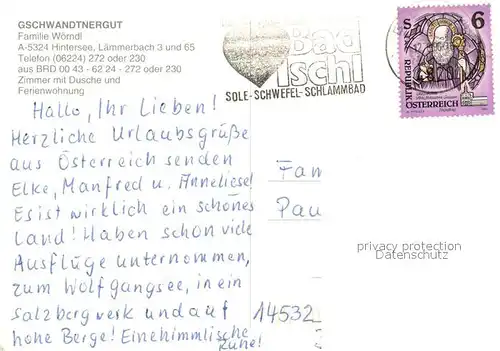 GSCHWANDTNERGUT
Familie Wörndl
A-5324 Hintersee, Lämmerbach 3 und 65
Telefon (06224) 272 oder 230
aus BRD 00 43 - 62 24 - 272 oder 230
Zimmer mit Dusche und
Ferienwohnung
Bad
Ischl
SOLE-SCHWEFEL-SCHLAMMBAD
S 6
REPUBLIK
ÖSTERREICH
Hallo, Ihr Lieben!
Herzliche Urlaubsgrüße
aus Österreich senden
Elke, Manfred u. Anneliese!
Es ist wirklich ein schönes
Land! Haben schon viele
Ausflüge unternommen,
zum Wolfgangsee, in ein
Salzbergwerk und auf
hohe Berge! Eine himmlische
Ruhe!
Fam
Pau
14532
privacy protection
Datenschutz